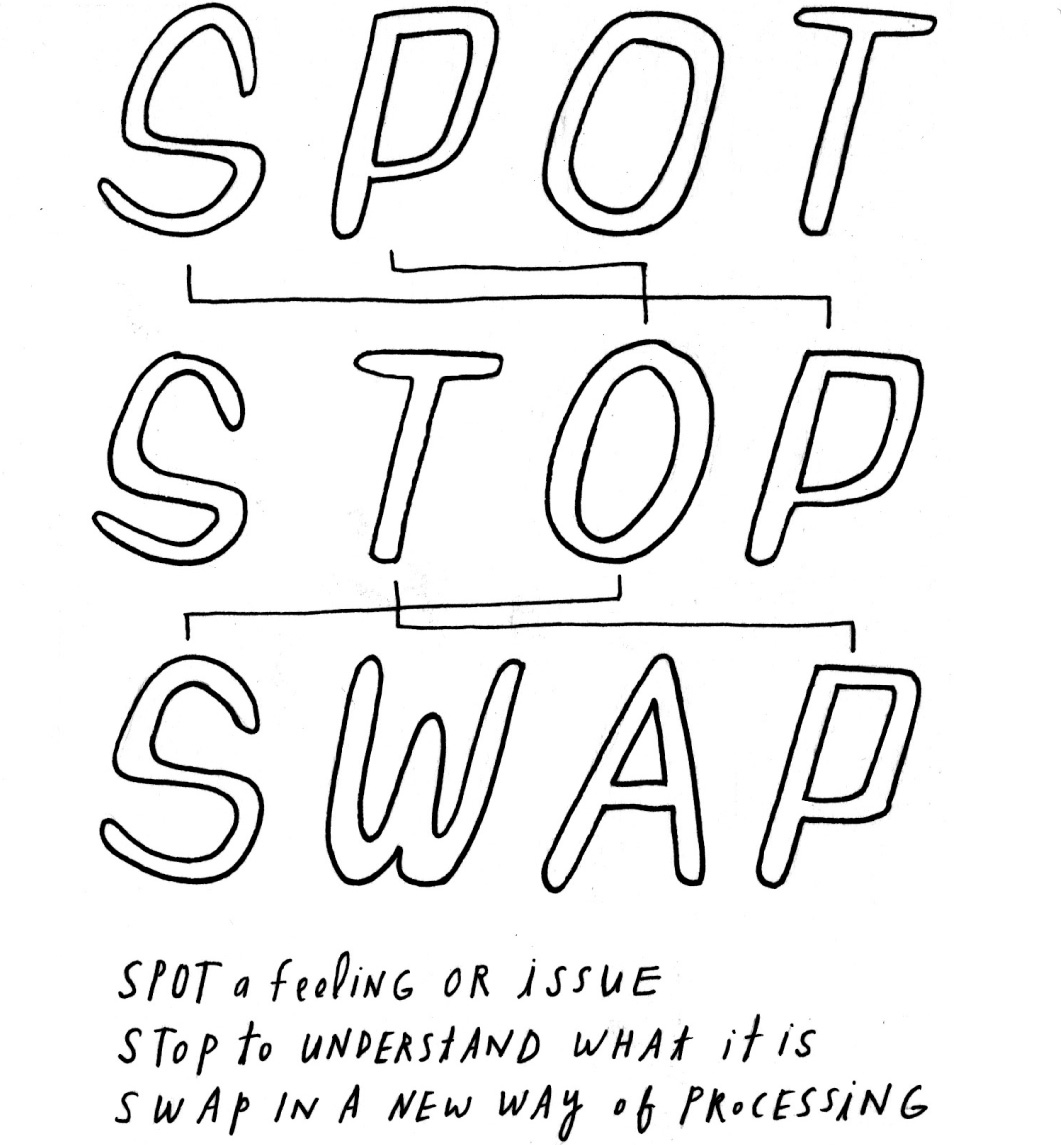 SPOT
STOP
SWAP
SPOT a feeliNG OR iSSUE
STOP to UNDERStAND WHAt it iS
SWAP IN A NEW WAy of PRoCESSiNG